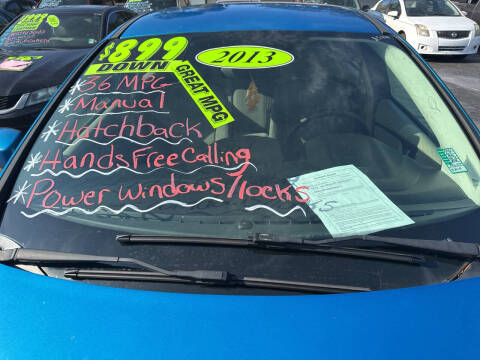 $899
DOWN
2013
GREAT MPG
*36 MPG
*Manual
*Hatchback
*Hands Free Calling
*Power Windows/locks